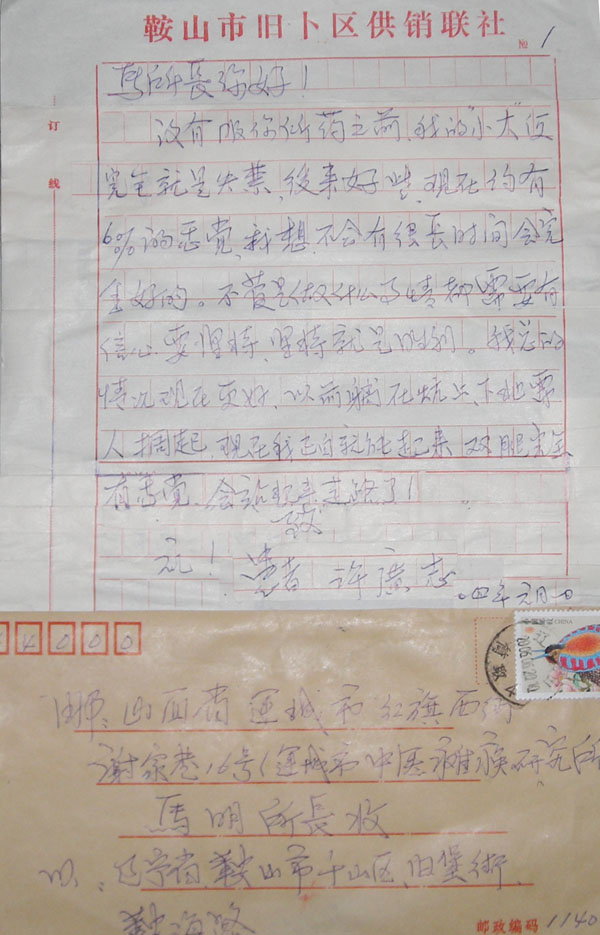 鞍山市旧卜区供销联社
№ 1
订
线
馬所長你好！
没有服你们药之前，我的“小大”便
完全就是失禁，後来好些，现在约有
60%的感觉，我想不会有很長时间会完
全好的。不管是做什么事情都需要有
信心，要坚持，坚持就是胜利。我总的
情况现在更好，以前躺在炕上，下地需
人捆起，现在我正自就能起来，双腿完全
有感觉，会站起来走路了！
致
礼！
患者 许廣志
04年元月一日
4000
中国邮政 CHINA
山西省运城市红旗西街
谢家巷16号（运城市中医瘫痪研究所
馬明所長收
辽宁省鞍山市千山区，旧堡街
鞍海路
邮政编码 1140